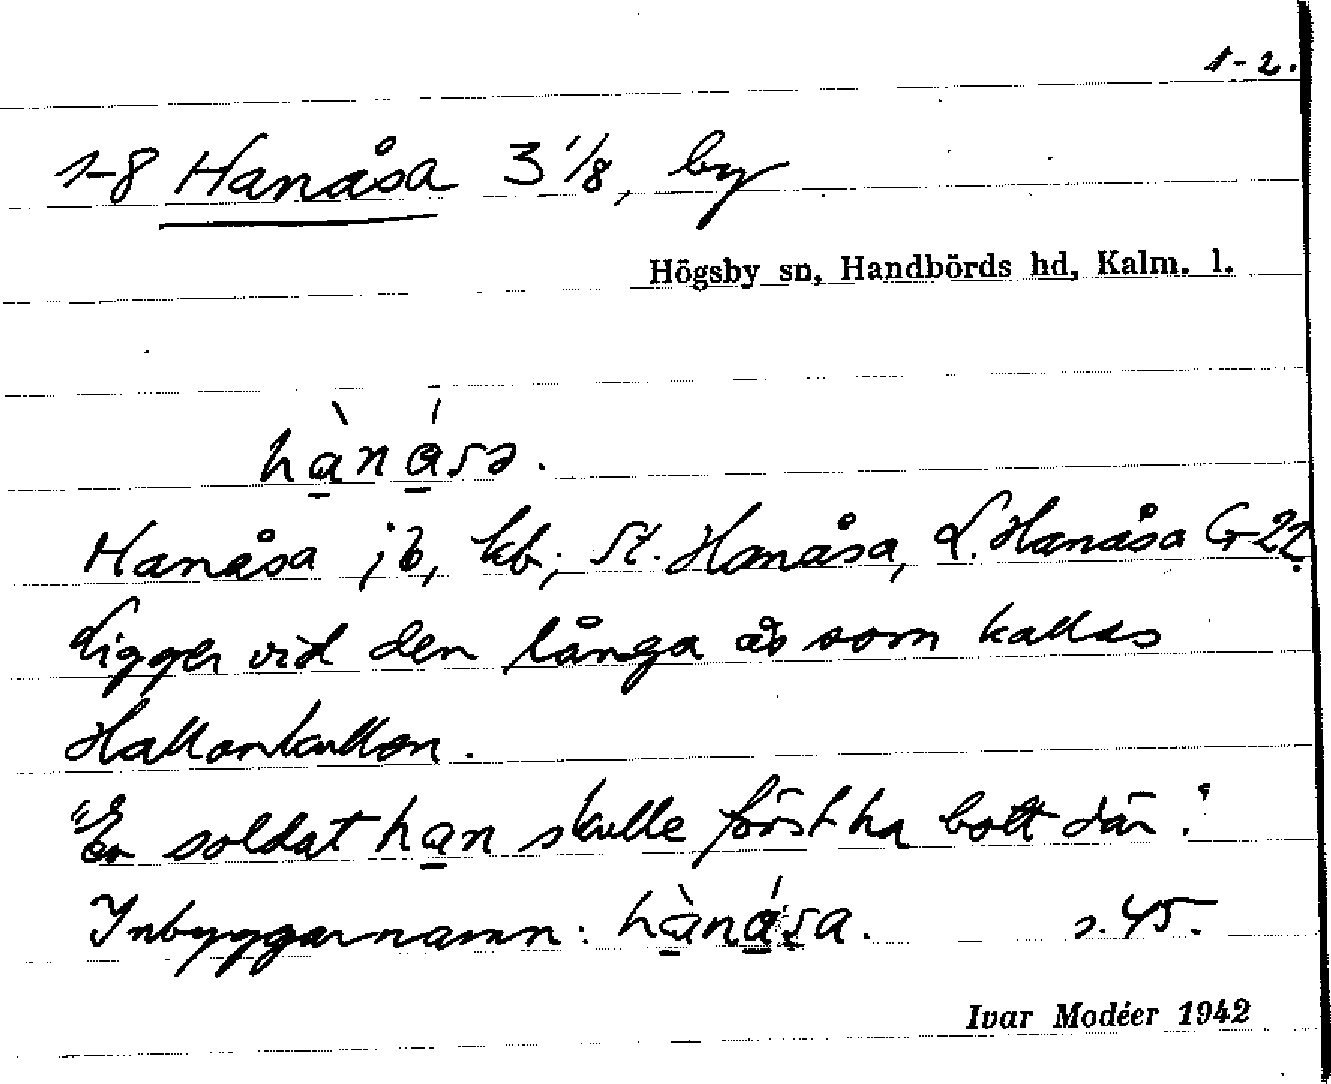 1-2.
1-8 Hanåsa 3 1/8, by
Högsby sn, Handbörds hd, Kalm. l.
hànǻ̲sə.
Hanåsa jb, kb; St. Hanåsa, L. Hanåsa G 22.
Ligger vid den långa ås som kallas
Hallonkullen.
"En soldat han skulle först ha bott där."
Inbyggarnamn: hànása. s. 45.
Ivar Modéer 1942